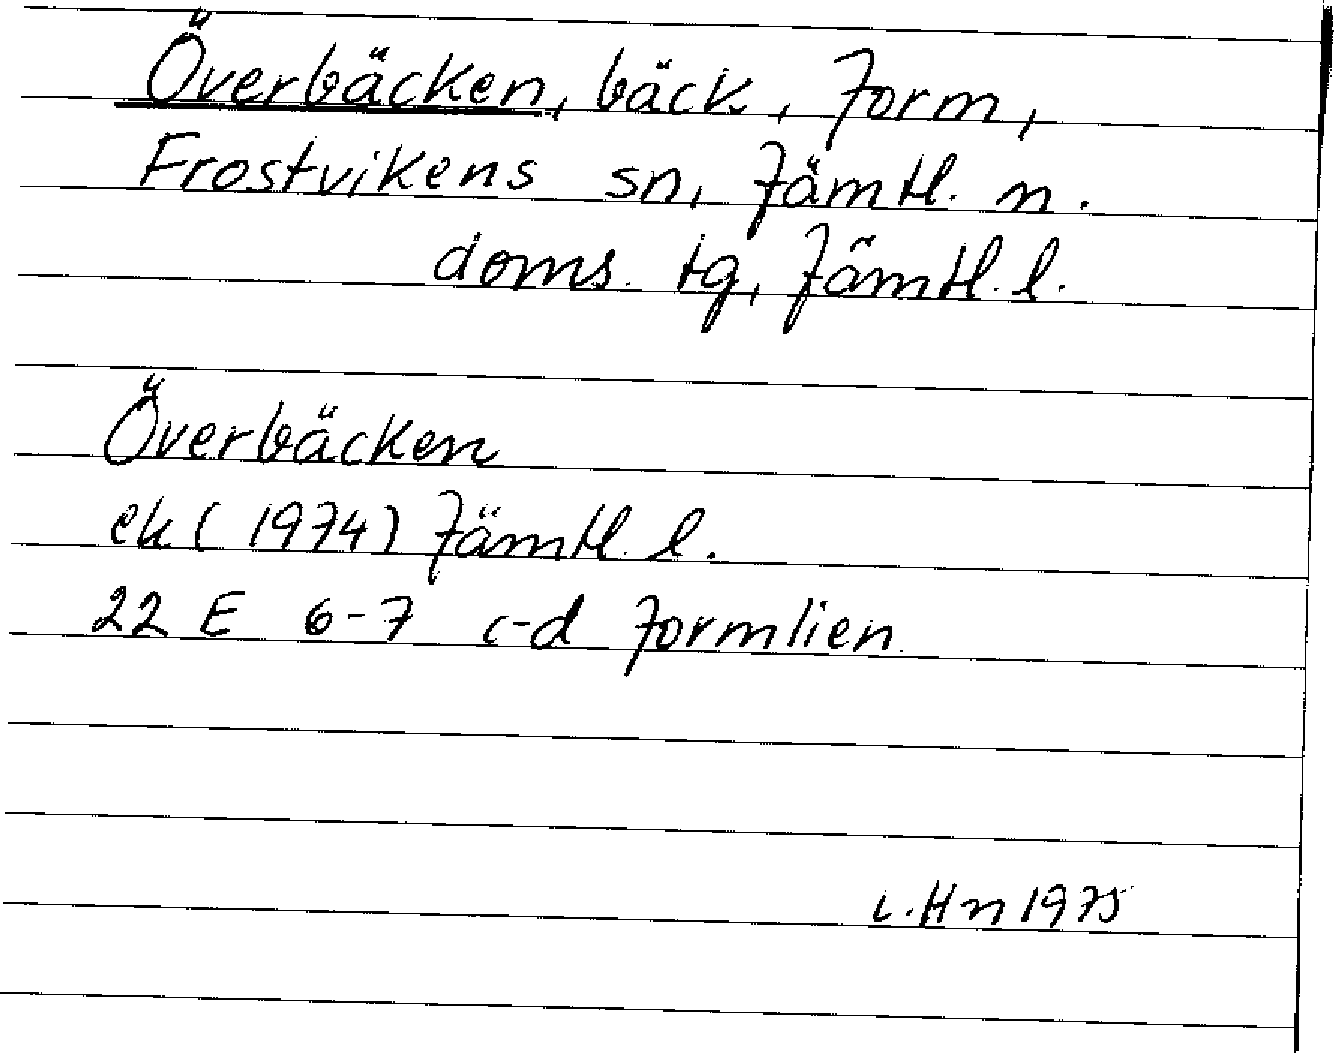 Överbäcken, bäck, Jorm,
Frostvikens sn, Jämtl. n.
doms. tg, Jämtl. l.
Överbäcken
ek (1974) Jämtl. l.
22 E 6-7 c-d Jormlien.
L. Hn 1975